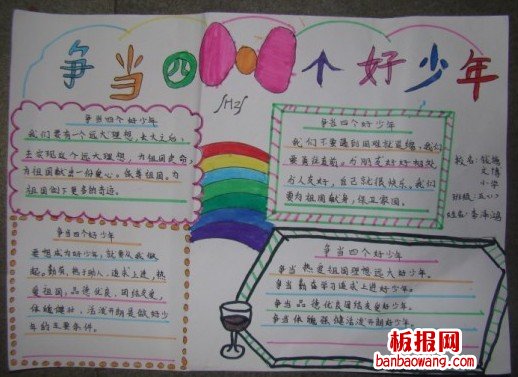 争当四个好少年
争当四个好少年
我们要有一个远大理想，长大之后，
去实现这个远大理想，为祖国走向
为祖国献身一份爱心。保卫祖国，为
祖国创下更多的奇迹。
争当四个好少年
我们不要遇到困难就退缩，我们
要勇往直前。为朋友好好相处
与人友好，自己就很快乐。我们
要为祖国献身，保卫家园。
校名：钱梅
文博
小学
班级：五(2)
姓名：李泽鸿
争当四个好少年
要想成为好少年，就要从我做
起，勤劳，热于助人，追求上进，热
爱祖国，品德优良，团结友爱，
体魄健壮，活泼开朗是做好少
年的主要条件。
争当四个好少年
争当 热爱祖国理想远大好少年。
争当 勤奋学习追求上进好少年。
争当 品德优良团结友爱好少年。
争当 体魄强健活泼开朗好少年。
板报网
banbaowang.com